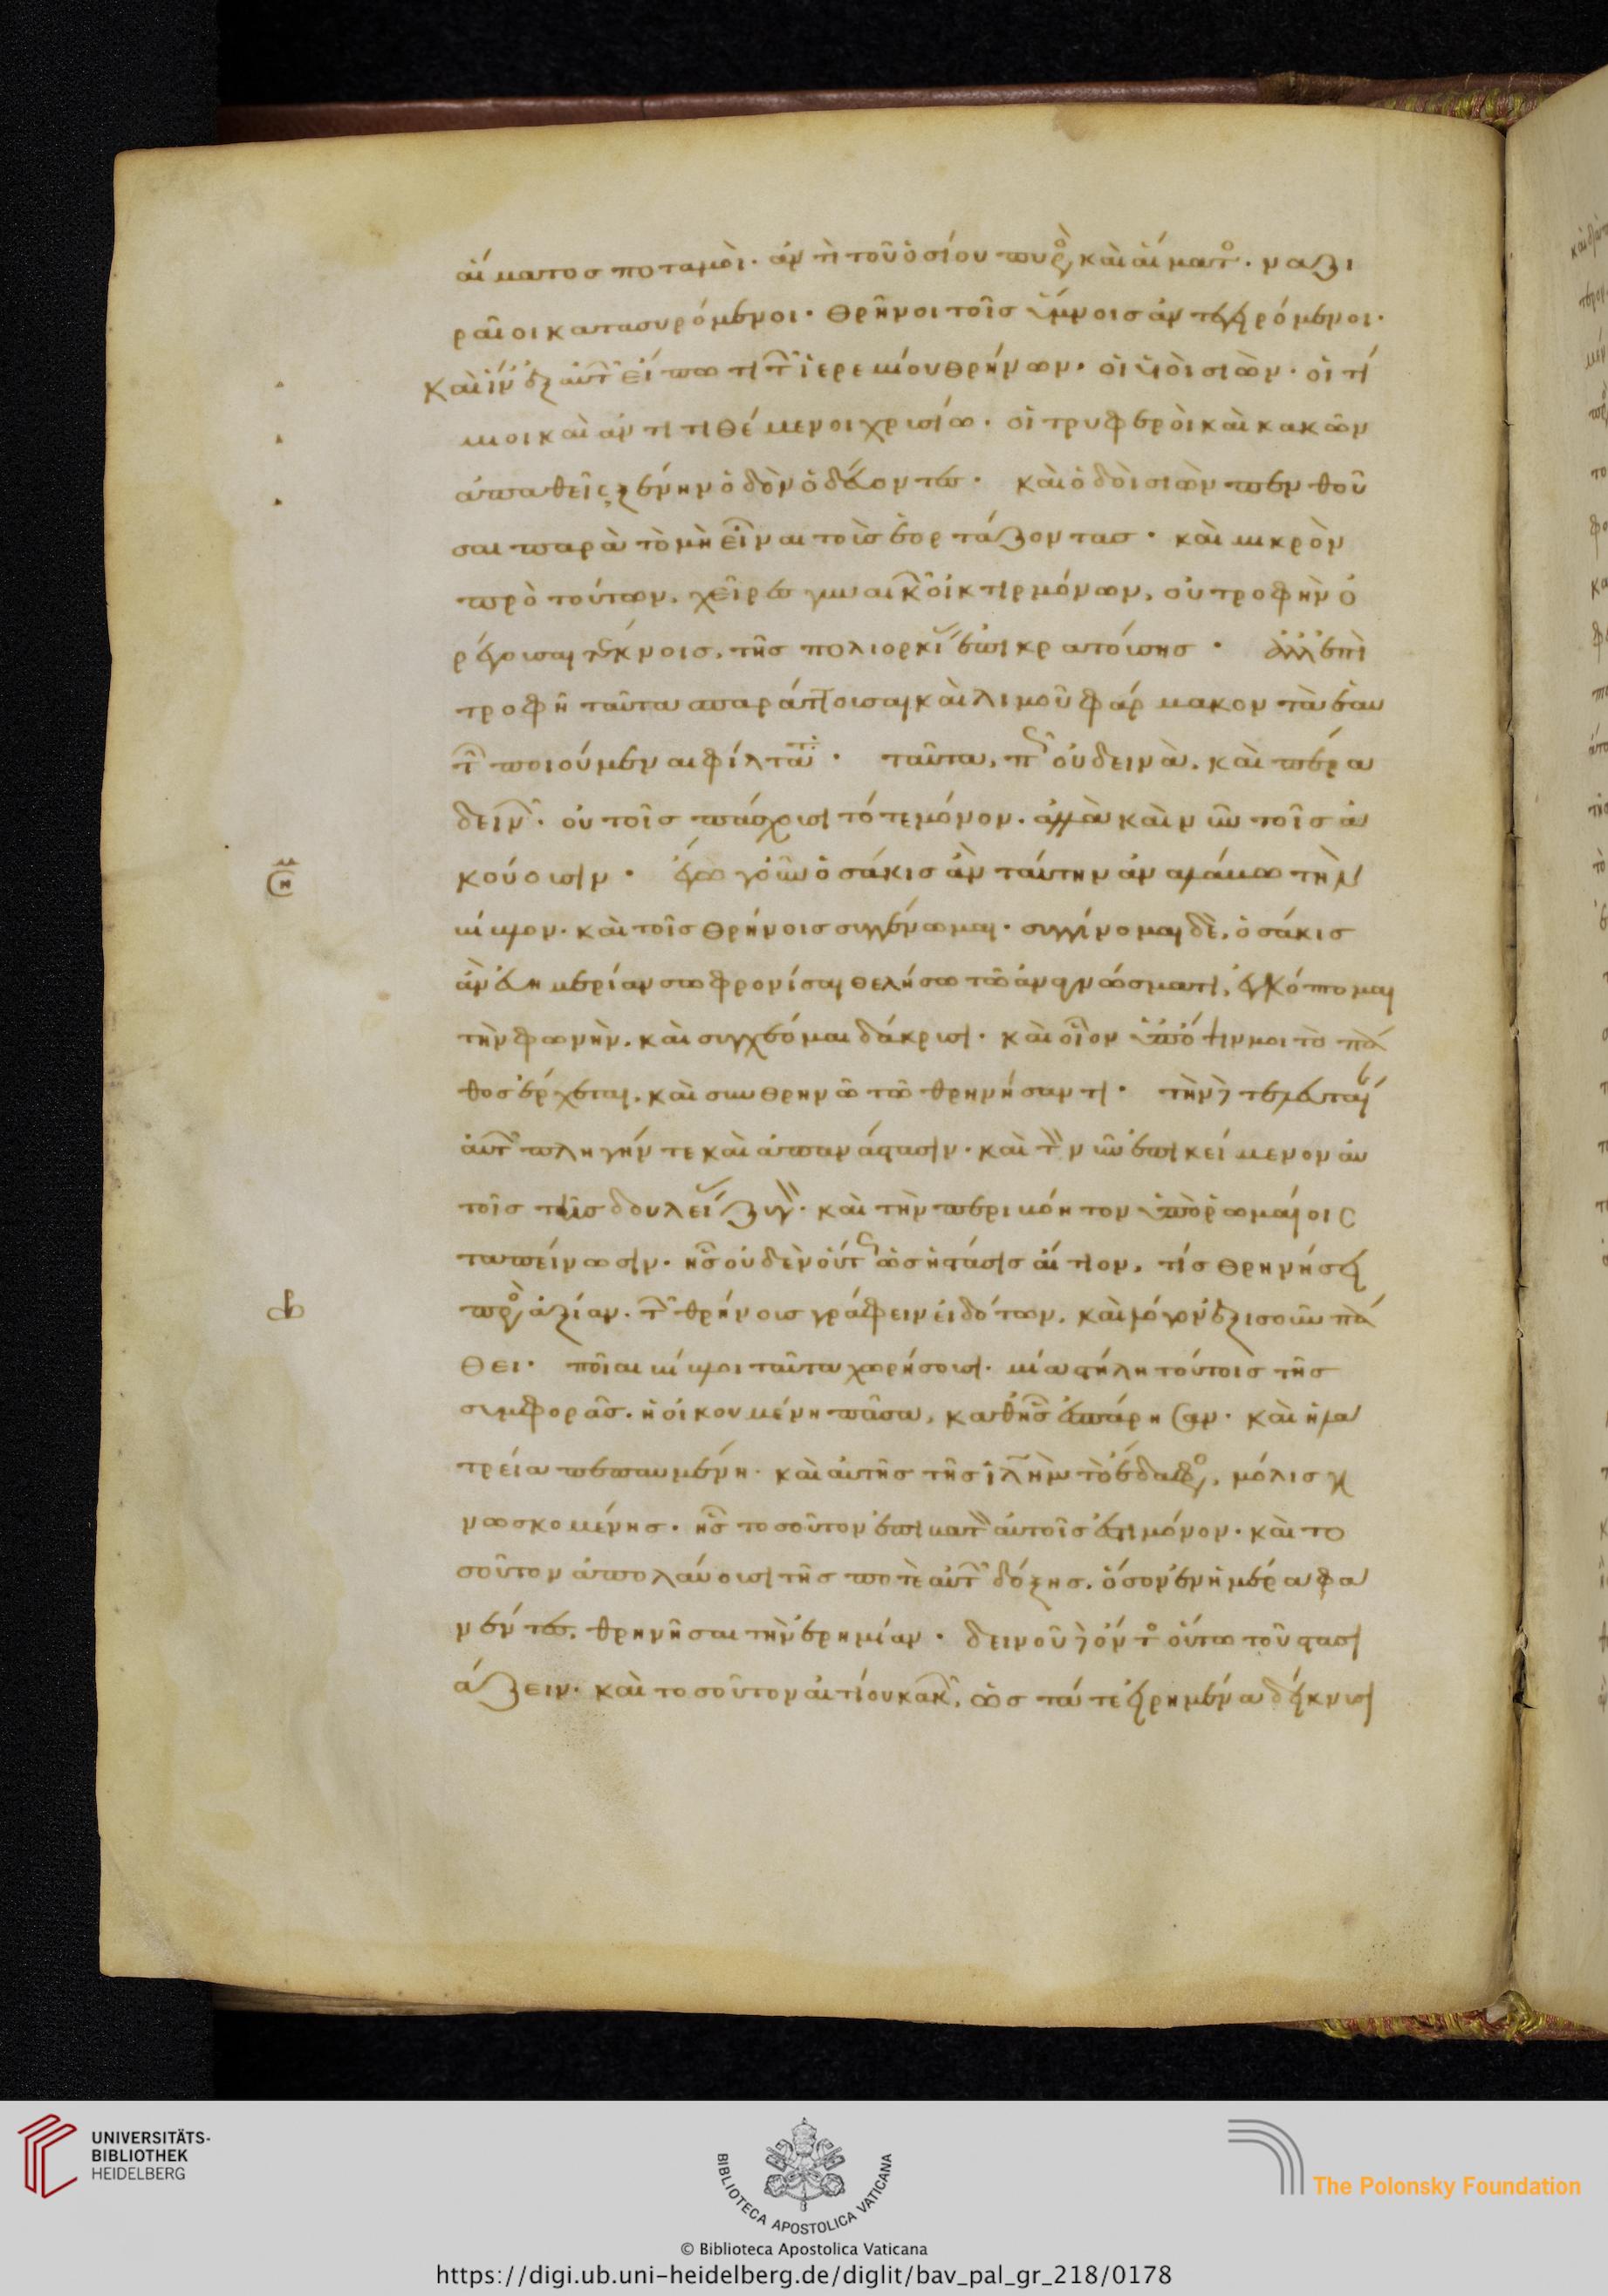 αἵματος ποταμοὶ· ἀντὶ τοῦ ὁσίου πυρὸς καὶ αἵματος· ναζι
ραῖοι κατασυρόμενοι· θρῆνοι τοῖς ὕμνοις ἀντεγειρόμενοι·
Καὶ ἵν' ἐξ αὐτῶν εἴπω τι τῶν ἱερεμίου θρήνων· οἱ υἱοὶ σιὼν· οἱ τί
μιοι καὶ ἀντιτιθέμενοι χρυσίω· οἱ τρυφεροὶ καὶ κακῶν
ἀπαθεῖς, ξένην ὁδὸν ὁδεύοντες· καὶ ὁδοὶ σιὼν πενθοῦ
σαι παρὰ τὸ μὴ εἶναι τοὺς ἑορτάζοντας· καὶ μικρὸν
πρὸ τούτων, χεῖρες γυναικῶν οἰκτιρμόνων, οὐ τροφὴν ὀ
ρέγουσαι τέκνοις, τῆς πολιορκίας ἐπικρατούσης· ἀλλ' ἐπὶ
τροφῆ ταῦτα σπαράττουσαι καὶ λιμοῦ φάρμακον τὰ ἑαυ
τῶν ποιούμεναι φίλτατα· ταῦτα, πῶς οὐ δεινὰ, καὶ πέρα
δεινῶν· οὐ τοῖς πάσχουσι τότε μόνον· ἀλλὰ καὶ νῦν τοῖς ἀ
κούουσιν· ἐγὼ γοῦν ὁσάκις ἂν ταύτην ἀναλάβω τὴν
βίβλον· καὶ τοῖς θρήνοις συγγένωμαι· συγγίνομαι δὲ, ὁσάκις
ἂν εὐημερίαν σωφρονίσαι θελήσω τῶ ἀναγνώσματι, ἐγκόπτομαι
τὴν φωνὴν, καὶ συγχέομαι δάκρυσι· καὶ οἷον ὑπ' ὄψιν μοι τὸ πά
θος ἔρχεται, καὶ συνθρηνῶ τῶ θρηνήσαντι· τὴν δὲ τελευταίαν
αὐτῶν πληγήν τε καὶ ἀπανάστασιν· καὶ τὸν νῦν ἐπικείμενον αὐ
τοῖς τῆς δουλείας ζυγὸν· καὶ τὴν περιβόητον ὑπὸ ῥωμαίοις
ταπείνωσιν· ἧς οὐδὲν οὕτως ὡς ἡ στάσις αἴτιον, τίς θρηνήσει
πρὸς ἀξίαν· τῶν θρήνους γράφειν εἰδότων, καὶ λόγον ἐξισοῦν πά
θει· ποῖαι βίβλοι ταῦτα χωρήσουσι· μία στήλη τούτοις τῆς
συμφορᾶς· ἡ οἰκουμένη πᾶσα, καθ' ἧς ἐσπάρησαν· καὶ ἡ λα
τρεία πεπαυμένη· καὶ αὐτῆς τῆς ἱλὴμ τὸ ἔδαφος, μόλις γι
νωσκομένης· ἧς τοσοῦτον ἐπιβατὸν αὐτοῖς ἐστι μόνον· καὶ το
σοῦτον ἀπολαύουσι τῆς ποτὲ αὐτῶν δόξης, ὅσον ἐν ἡμέρα φα
νέντες, θρηνῆσαι τὴν ἐρημίαν· δεινοῦ δὲ ὄντος οὕτω τοῦ στασι
άζειν· καὶ τοσοῦτον αἰτίου κακῶν, ὡς τά τε εἰρημένα δείκνυσι
UNIVERSITÄTS-
BIBLIOTHEK
HEIDELBERG
BIBLIOTECA APOSTOLICA VATICANA
The Polonsky Foundation
© Biblioteca Apostolica Vaticana
https://digi.ub.uni-heidelberg.de/diglit/bav_pal_gr_218/0178